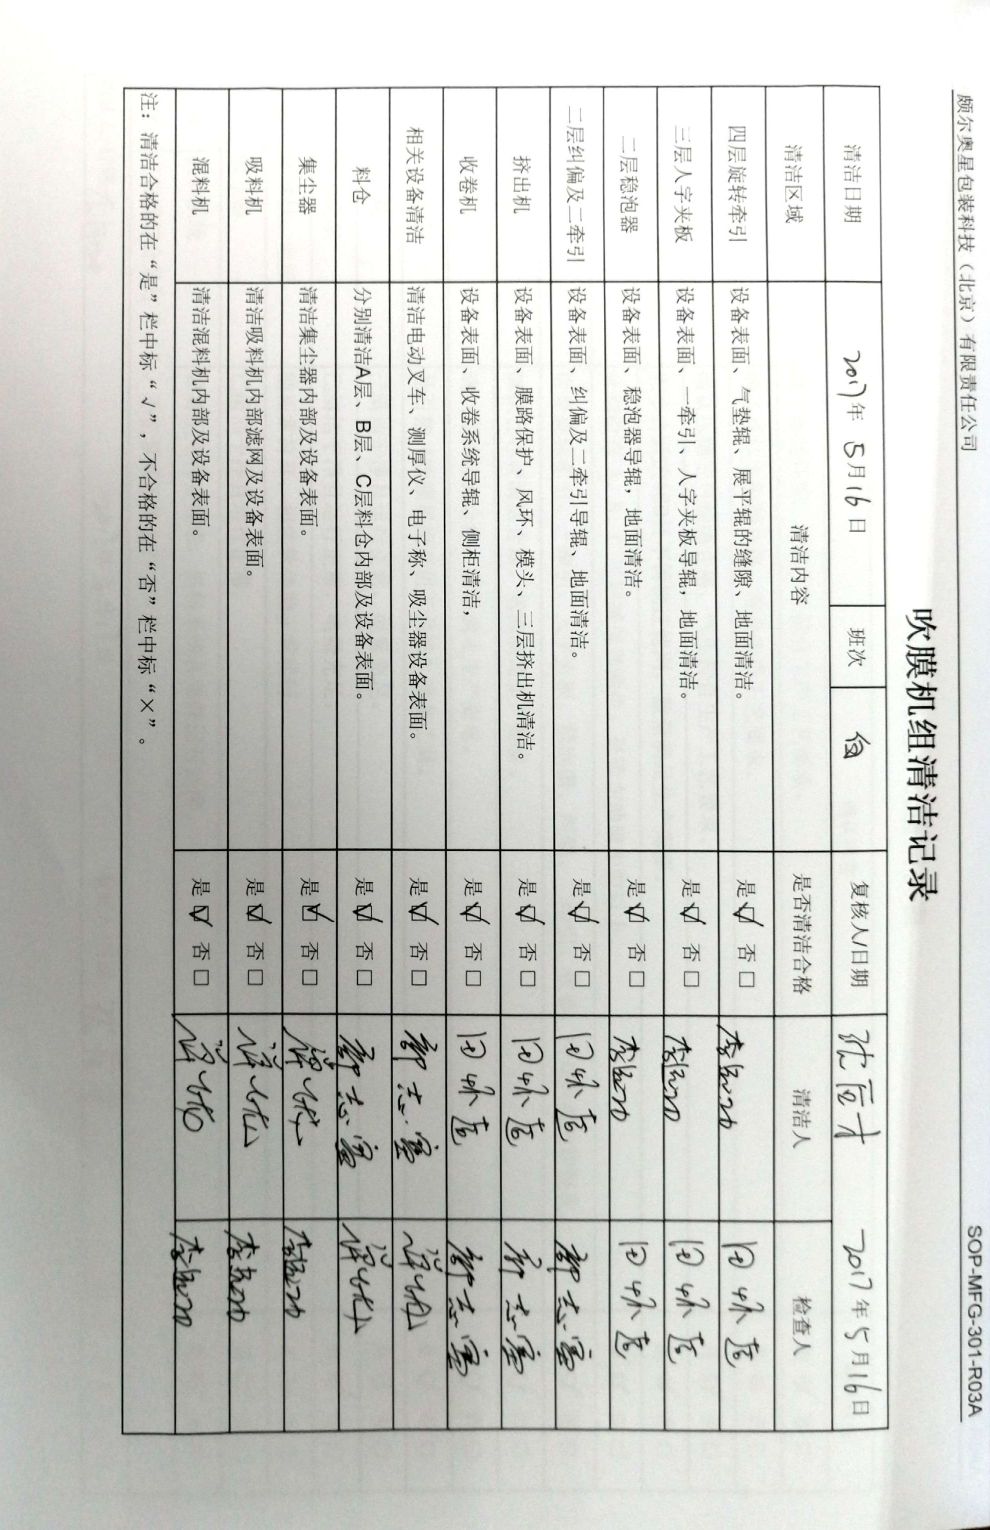 颇尔奥星包装科技（北京）有限责任公司 SOP-MFG-301-R03A
吹膜机组清洁记录
清洁日期 2017年 5月16日 班次 白 复核人/日期 2017年5月16日
清洁区域 清洁内容 是否清洁合格 清洁人 检查人
四层旋转牵引 设备表面、气垫辊、展平辊的缝隙、地面清洁。 是☑ 否□
三层人字夹板 设备表面、一牵引、人字夹板导辊，地面清洁。 是☑ 否□
二层稳泡器 设备表面、稳泡器导辊，地面清洁。 是☑ 否□
二层纠偏及二牵引 设备表面、纠偏及二牵引导辊、地面清洁。 是☑ 否□
挤出机 设备表面、膜路保护、风环、模头、三层挤出机清洁。 是☑ 否□
收卷机 设备表面、收卷系统导辊、侧柜清洁， 是☑ 否□
相关设备清洁 清洁电动叉车、测厚仪、电子称、吸尘器设备表面。 是☑ 否□
料仓 分别清洁A层、B层、C层料仓内部及设备表面。 是☑ 否□
集尘器 清洁集尘器内部及设备表面。 是☑ 否□
吸料机 清洁吸料机内部滤网及设备表面。 是☑ 否□
混料机 清洁混料机内部及设备表面。 是☑ 否□
注：清洁合格的在“是”栏中标“√”，不合格的在“否”栏中标“×”。